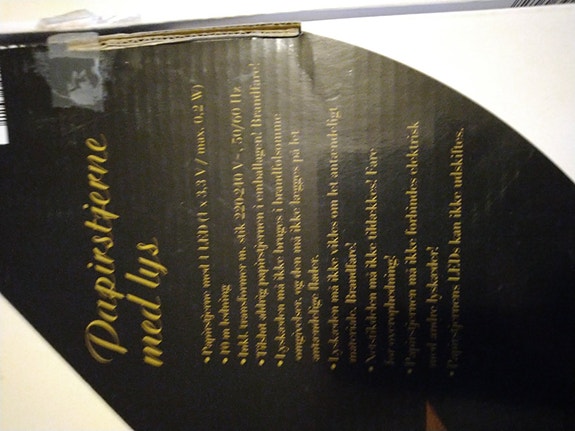 Papirstjerne
med lys
• Papirstjerne med 1 LED (1 x 3,3 V / max. 0,2 W)
• 10 m ledning
• Inkl. transformer m. stik 220-240 V~, 50/60 Hz
• Tilslut aldrig papirstjernen i emballagen! Brandfare!
• Lyskæden må ikke bruges i brandfølsomme
omgivelser, og den må ikke lægges på let
antændelige flader.
• Lyskæden må ikke vikles om let antændeligt
materiale. Brandfare!
• Netstikdelen må ikke tildækkes! Fare
for overophedning!
• Papirstjernen må ikke forbindes elektrisk
med andre lyskæder!
• Papirstjernens LEDs kan ikke udskiftes.